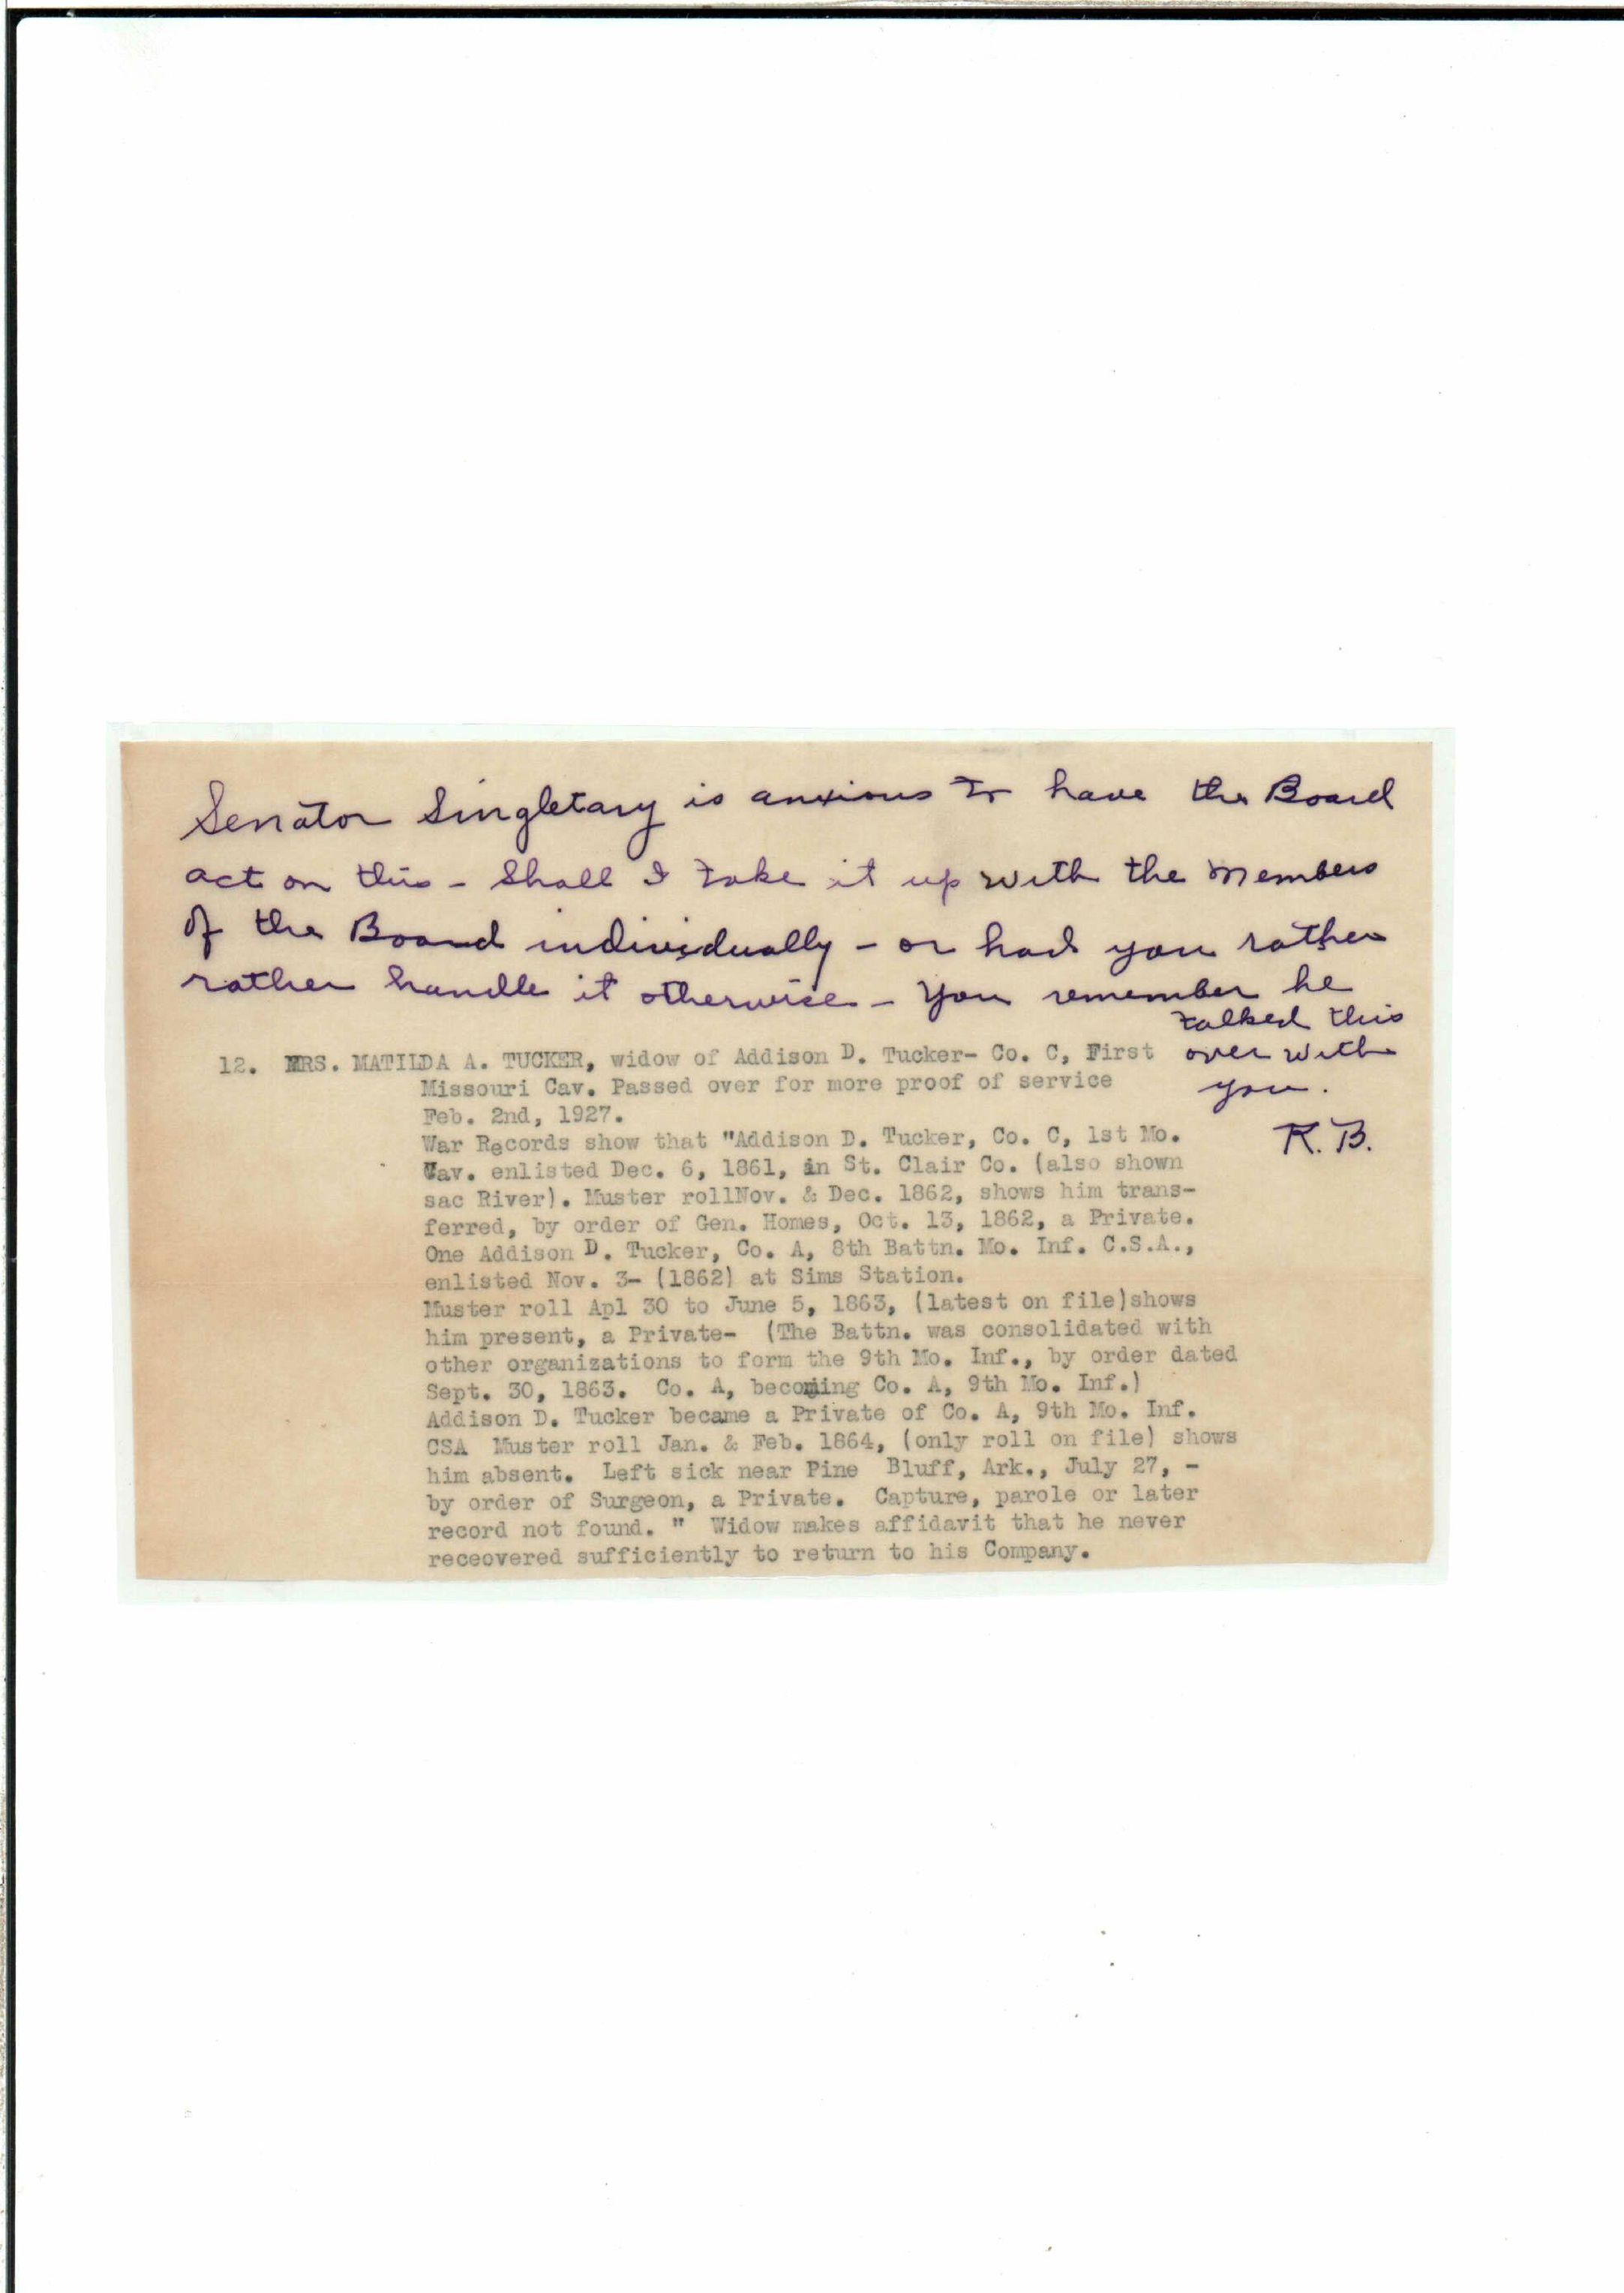 Senator Singletary is anxious to have the Board
act on this - Shall I take it up with the members
of the Board individually - or had you rather
rather handle it otherwise - You remember he
talked this
over with
you.
R.B.
12. MRS. MATILDA A. TUCKER, widow of Addison D. Tucker- Co. C, First
Missouri Cav. Passed over for more proof of service
Feb. 2nd, 1927.
War Records show that "Addison D. Tucker, Co. C, 1st Mo.
Cav. enlisted Dec. 6, 1861, in St. Clair Co. (also shown
sac River). Muster rollNov. & Dec. 1862, shows him trans-
ferred, by order of Gen. Homes, Oct. 13, 1862, a Private.
One Addison D. Tucker, Co. A, 8th Battn. Mo. Inf. C.S.A.,
enlisted Nov. 3- (1862) at Sims Station.
Muster roll Apl 30 to June 5, 1863, (latest on file)shows
him present, a Private- (The Battn. was consolidated with
other organizations to form the 9th Mo. Inf., by order dated
Sept. 30, 1863. Co. A, becoming Co. A, 9th Mo. Inf.)
Addison D. Tucker became a Private of Co. A, 9th Mo. Inf.
CSA Muster roll Jan. & Feb. 1864, (only roll on file) shows
him absent. Left sick near Pine Bluff, Ark., July 27, -
by order of Surgeon, a Private. Capture, parole or later
record not found. " Widow makes affidavit that he never
receovered sufficiently to return to his Company.